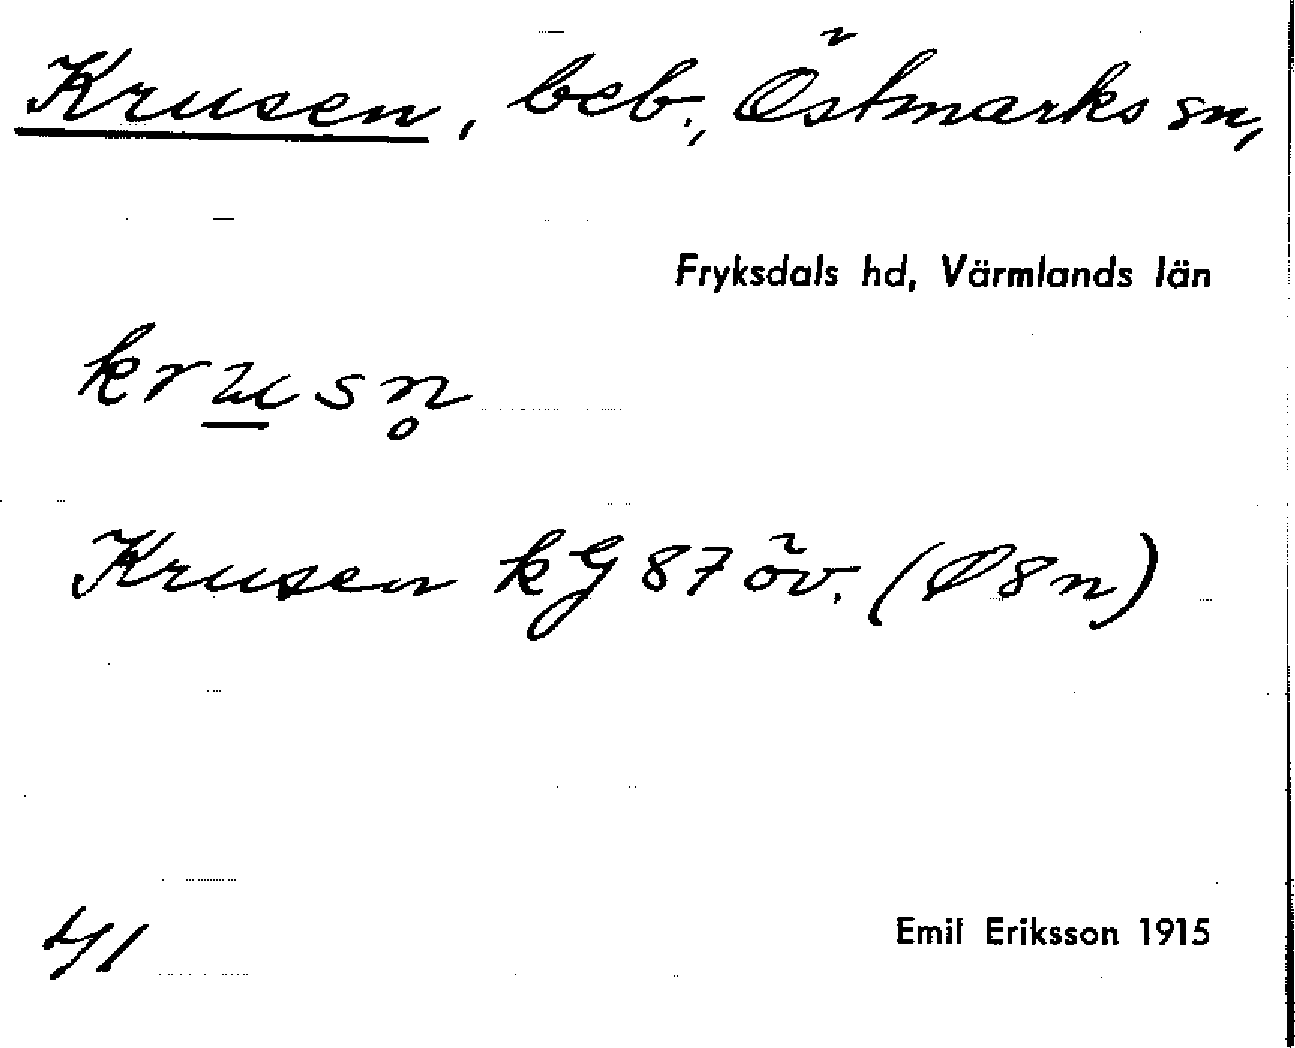 Krusen, beb., Östmarks sn,
Fryksdals hd, Värmlands län
krusn̥
Krusen kG 87 öv. (Ø8n)
41
Emil Eriksson 1915